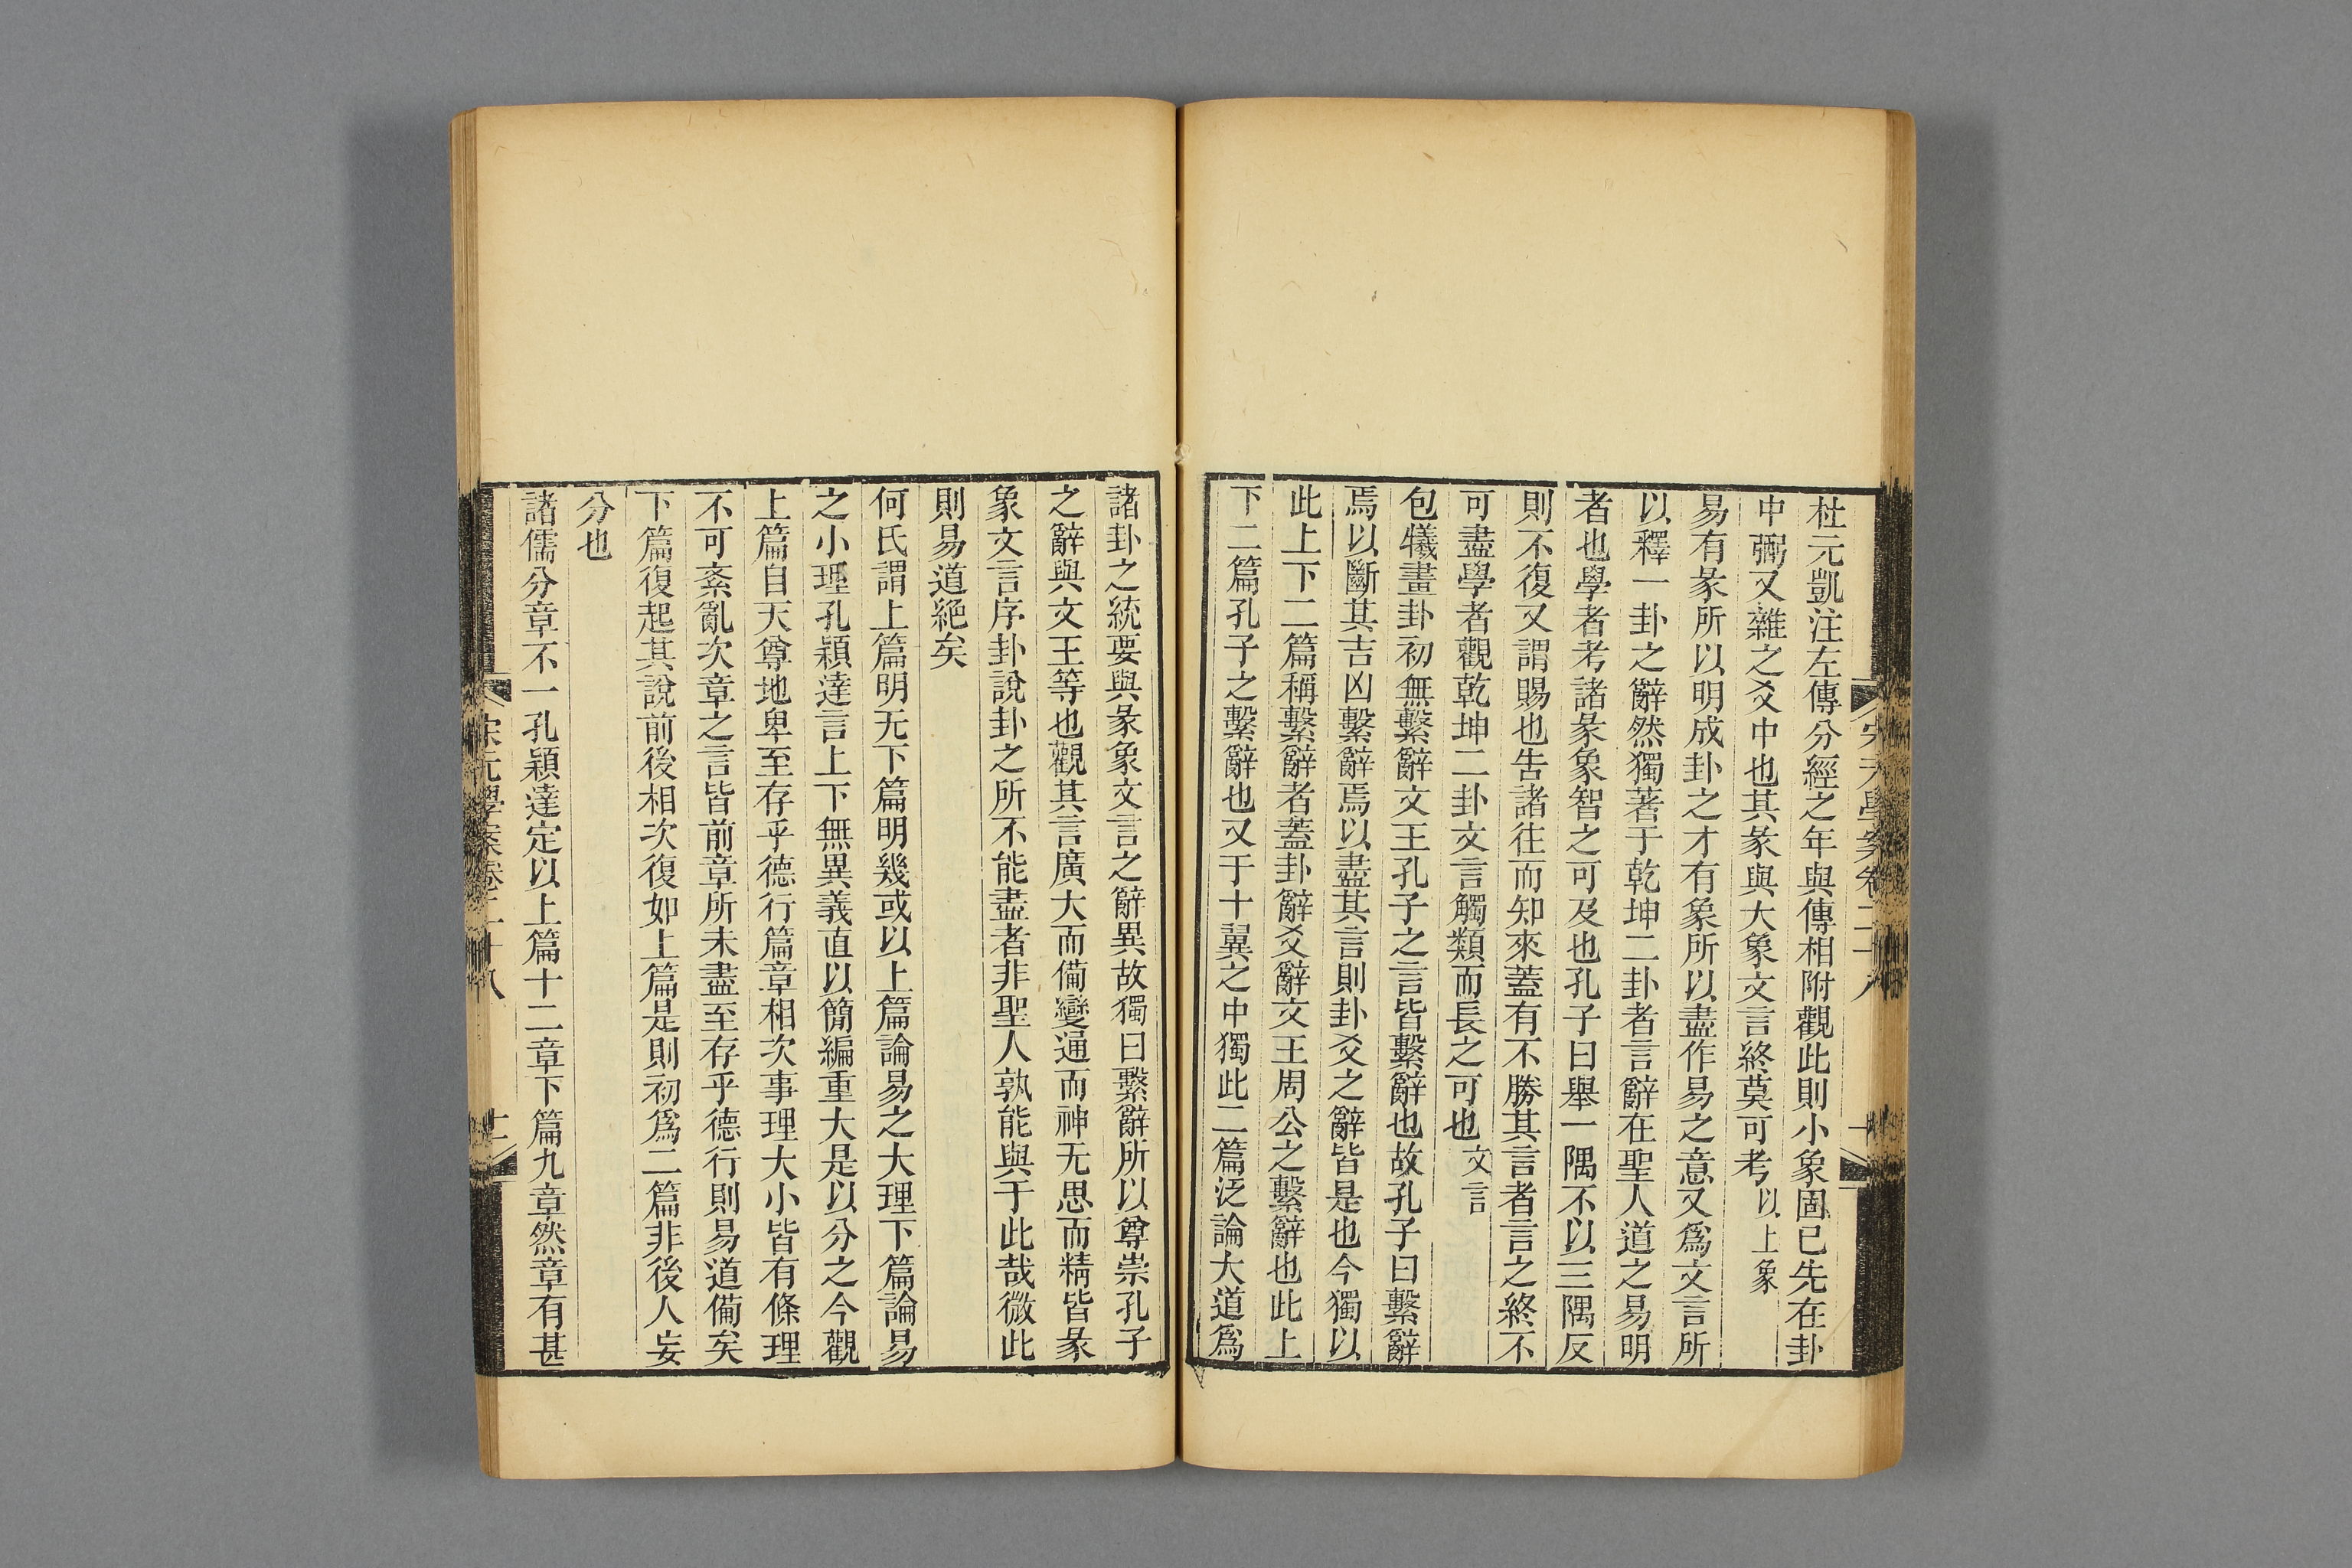 杜元凱注左傳分經之年與傳相附觀此則小象固已先在卦
中弼又雜之爻中也其彖與大象文言終莫可考以上象
易有彖所以明成卦之才有象所以盡作易之意又爲文言所
以釋一卦之辭然獨著于乾坤二卦者言辭在聖人道之易明
者也學者考諸彖象智之可及也孔子曰舉一隅不以三隅反
則不復又謂賜也告諸往而知來蓋有不勝其言者言之終不
可盡學者觀乾坤二卦文言觸類而長之可也文言
包犧畫卦初無繫辭文王孔子之言皆繫辭也故孔子曰繫辭
焉以斷其吉凶繫辭焉以盡其言則卦爻之辭皆是也今獨以
此上下二篇稱繫辭者蓋卦辭爻辭文王周公之繫辭也此上
下二篇孔子之繫辭也又于十翼之中獨此二篇泛論大道爲
諸卦之統要與彖象文言之辭異故獨曰繫辭所以尊崇孔子
之辭與文王等也觀其言廣大而備變通而神无思而精皆彖
象文言序卦說卦之所不能盡者非聖人孰能與于此哉微此
則易道絕矣
何氏謂上篇明无下篇明幾或以上篇論易之大理下篇論易
之小理孔穎達言上下無異義直以簡編重大是以分之今觀
上篇自天尊地卑至存乎德行篇章相次事理大小皆有條理
不可紊亂次章之言皆前章所未盡至存乎德行則易道備矣
下篇復起其說前後相次復如上篇是則初爲二篇非後人妄
分也
諸儒分章不一孔穎達定以上篇十二章下篇九章然章有甚
宋元學案卷二十八